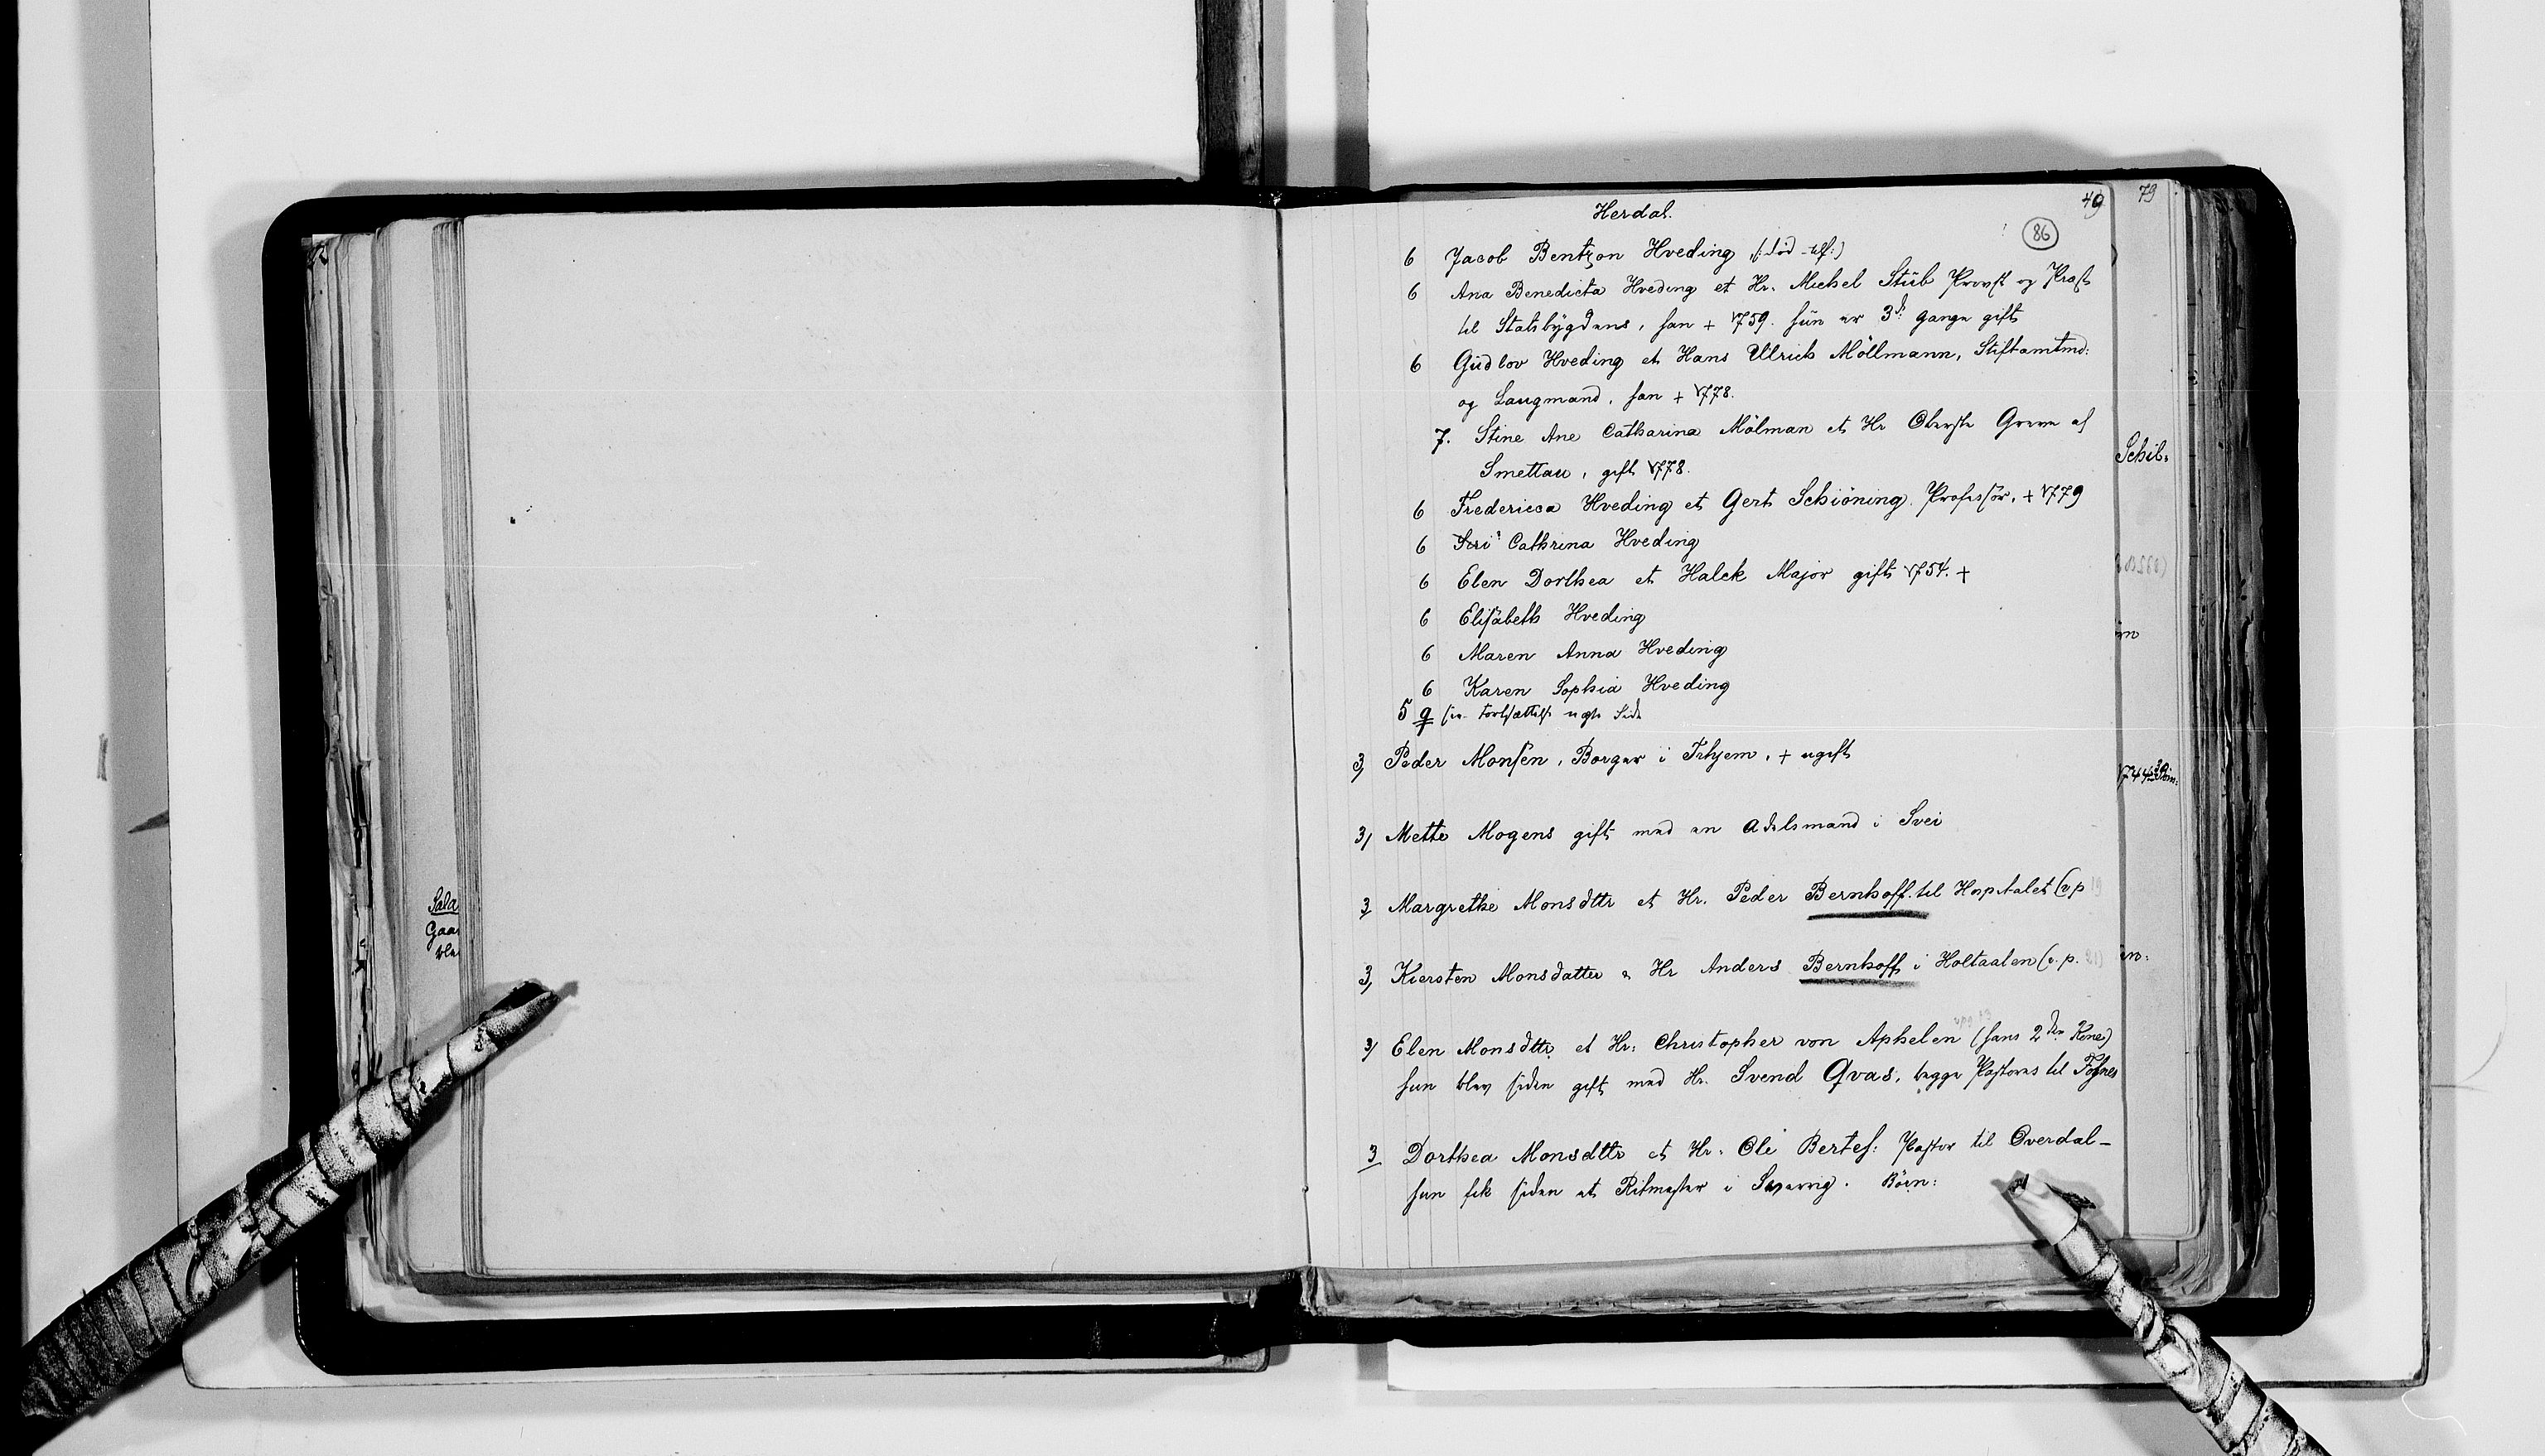 Sala
Gaa
ble
79
49
Herdal.
86
6 Jacob Bentzon Hveding (: död
6 Ana Benedicta Hveding et Hr. Michel Stüb Provst og Præst
til Statsbÿgdens, han + 1759. hün er 3de gange gift
6 Güdlov Hveding et Hans Ulrich Möllmann, Stiftamtmd:
og Laugmand, han + 1778.
7. Stine Ane Catharina Mölman et Hr Oberste Greve af
Smettau, gift 1778.
6 Fredericca Hveding et Gert Schiöning. Professor. + 1779
6 Siri Cathrina Hveding
6 Elen Dorthea et Halck Major gift 1754. +
6 Elisabeth Hveding
6 Maren Anna Hveding
6 Karen Sophia Hveding
5 q se fortsættelse Side
3) Peder Monsen, Borger i Trhjem, + ugift
3) Mette Mogens gift med en Adelsmand i Svei
3 Margrethe Monsdttr et Hr. Peder Bernhoff. til Hospitalet (v p 19
3) Kiersten Monsdatter & Hr Anders Bernhoff i Holtaalen (v. p. 21)
3) Elen Monsdttr et Hr: Christopher von Aphelen (hans 2den Kone)
hun blev siden gift med Hr. Svend Qvas, begge Pastores til Fosnes
3 Dorthea Monsdttr et Hr. Ole Bertes: Pastor til Overdal-
hun fik siden et Ritmester i Sverrig. Börn:
Schil:
1744
en: